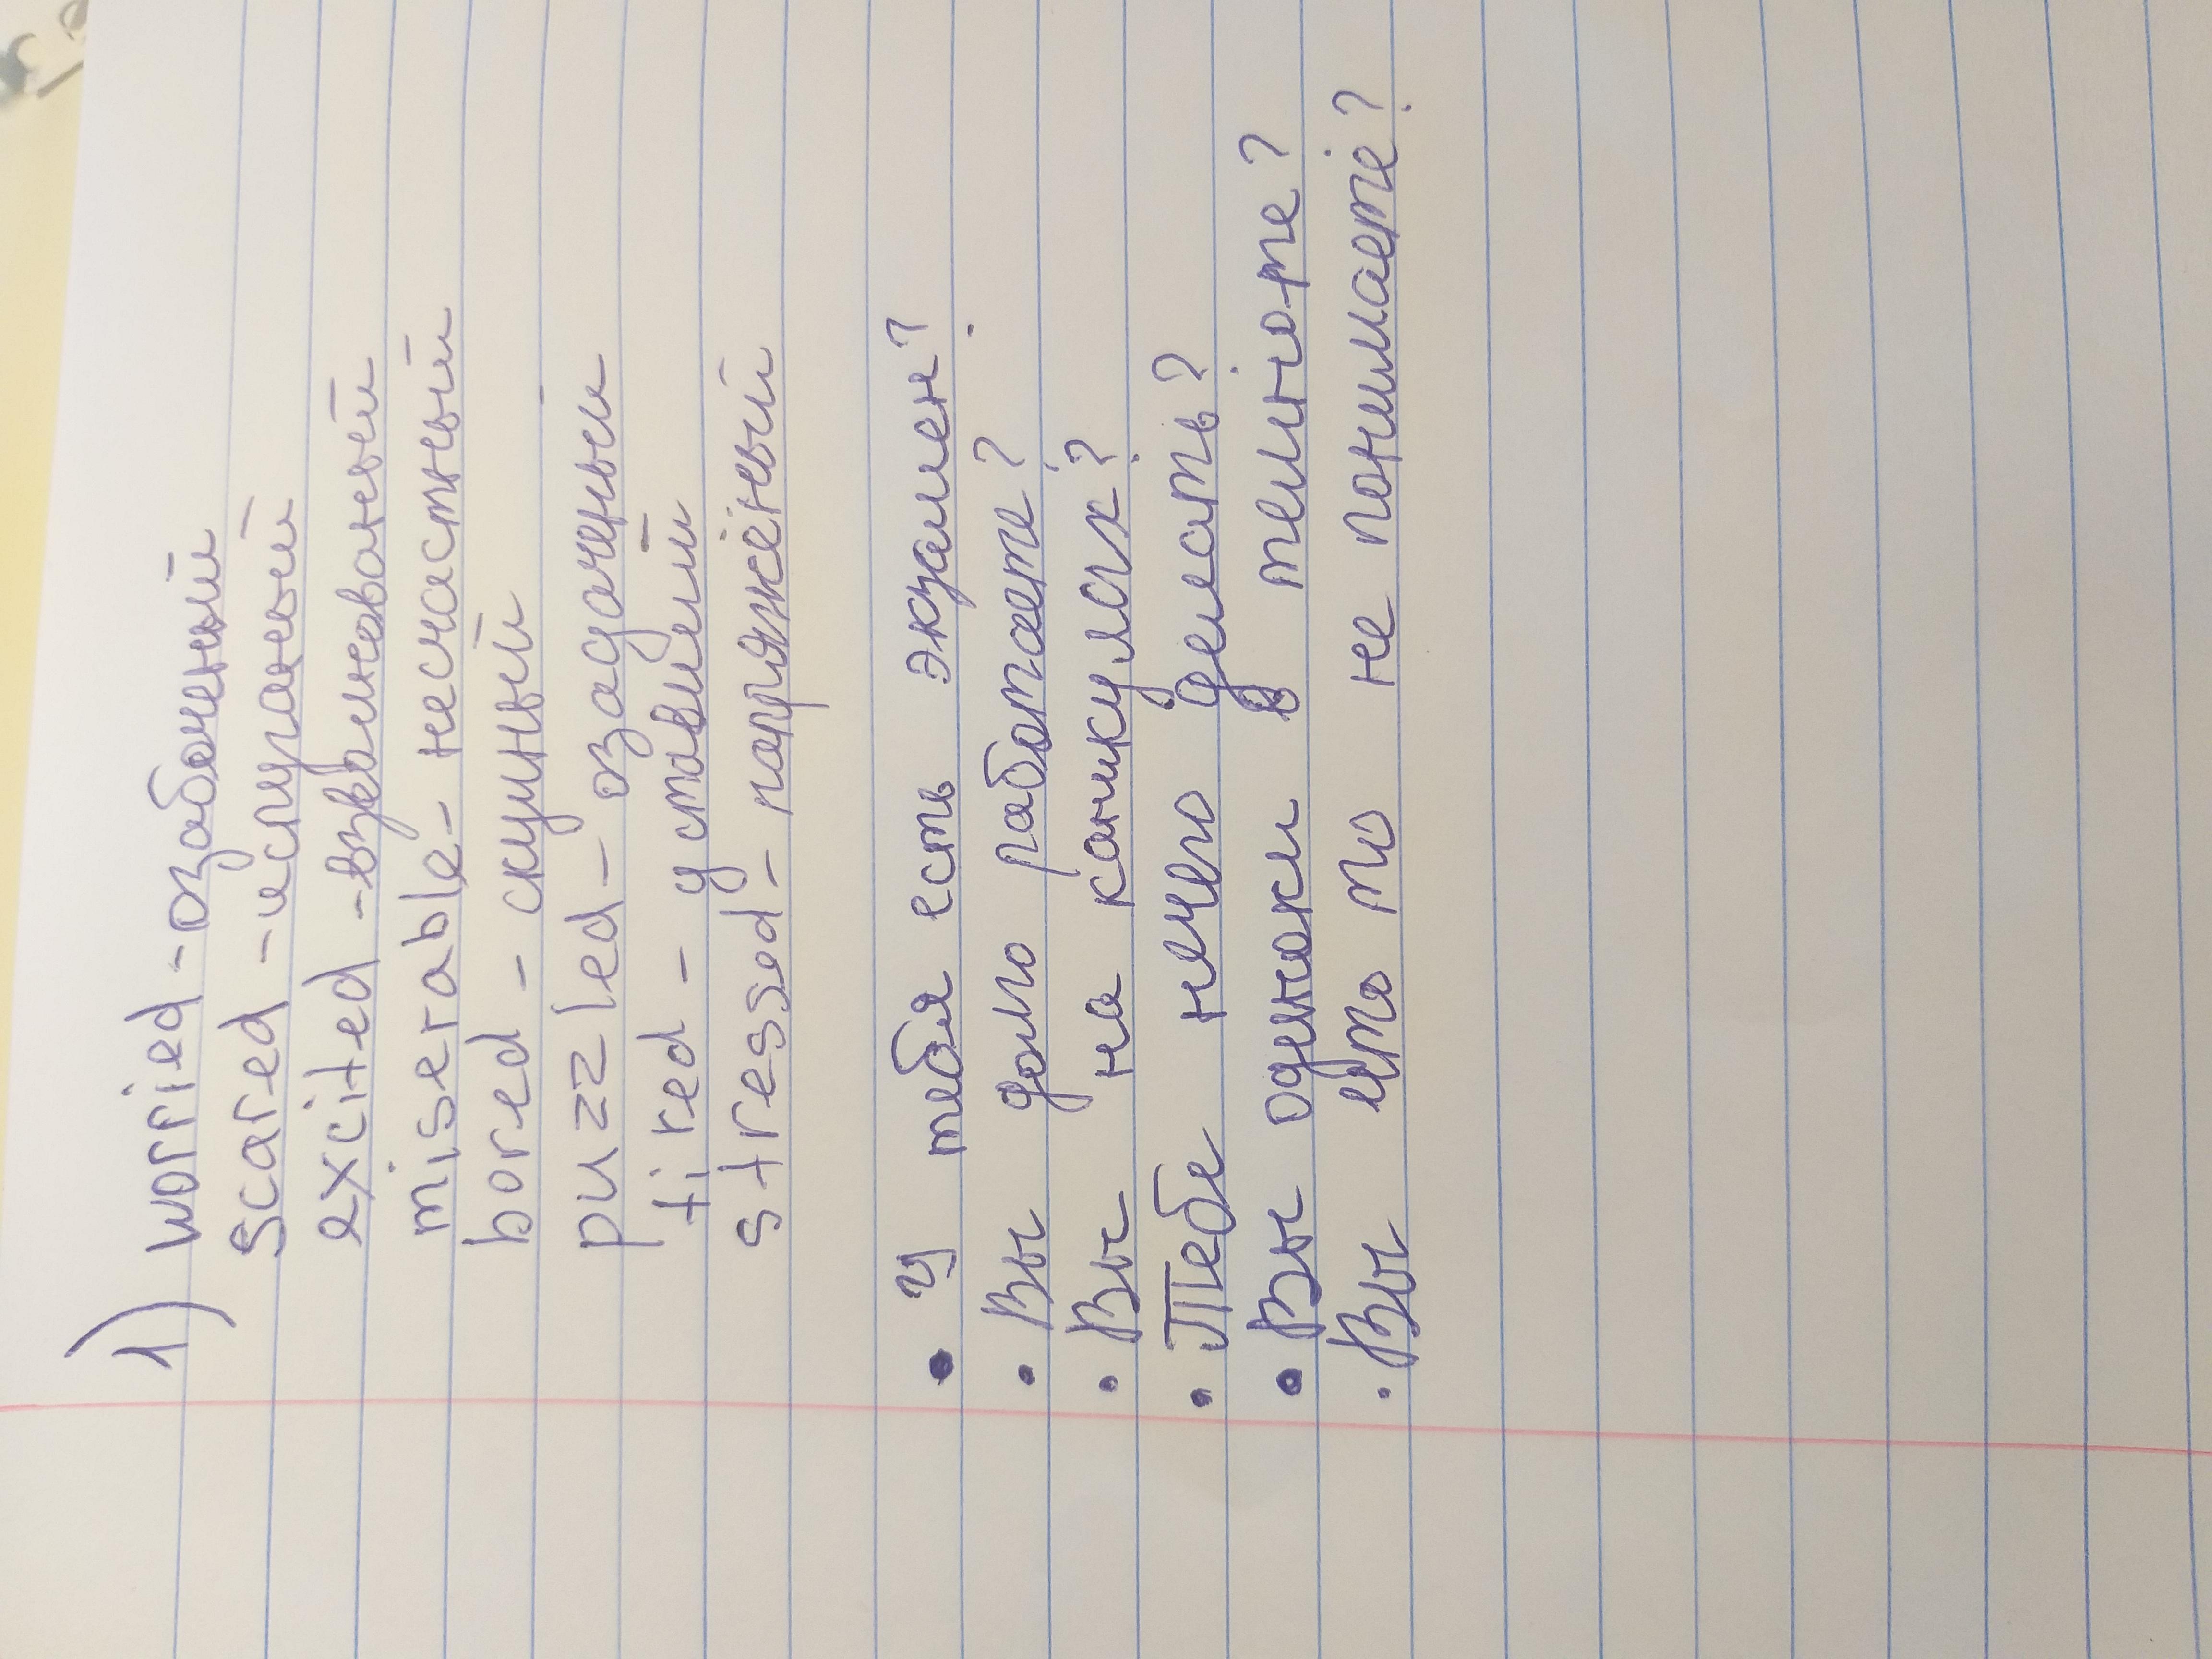 1) worried - озабоченный
scared - испуганый
excited - взвалнованый
miserable - несчастный
bored - скучный
puzzled - озадаченый
tired - уставший
stressed - напряжёный
• У тебя есть экзамен?
• Вы долго работаете?
• Вы на каникулах?
• Тебе нечего делать?
• Вы одиноки в темноте?
• Вы что то не понимаете?